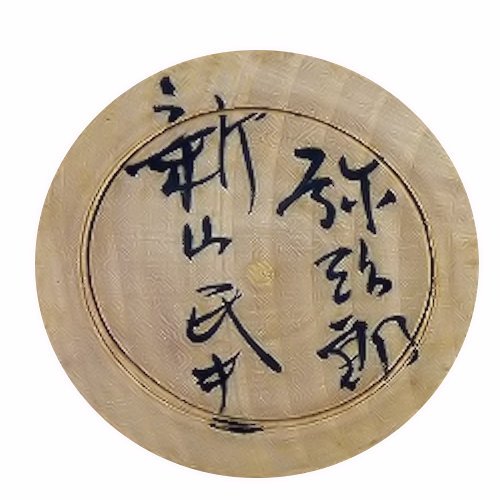 弥治郎
新山民夫